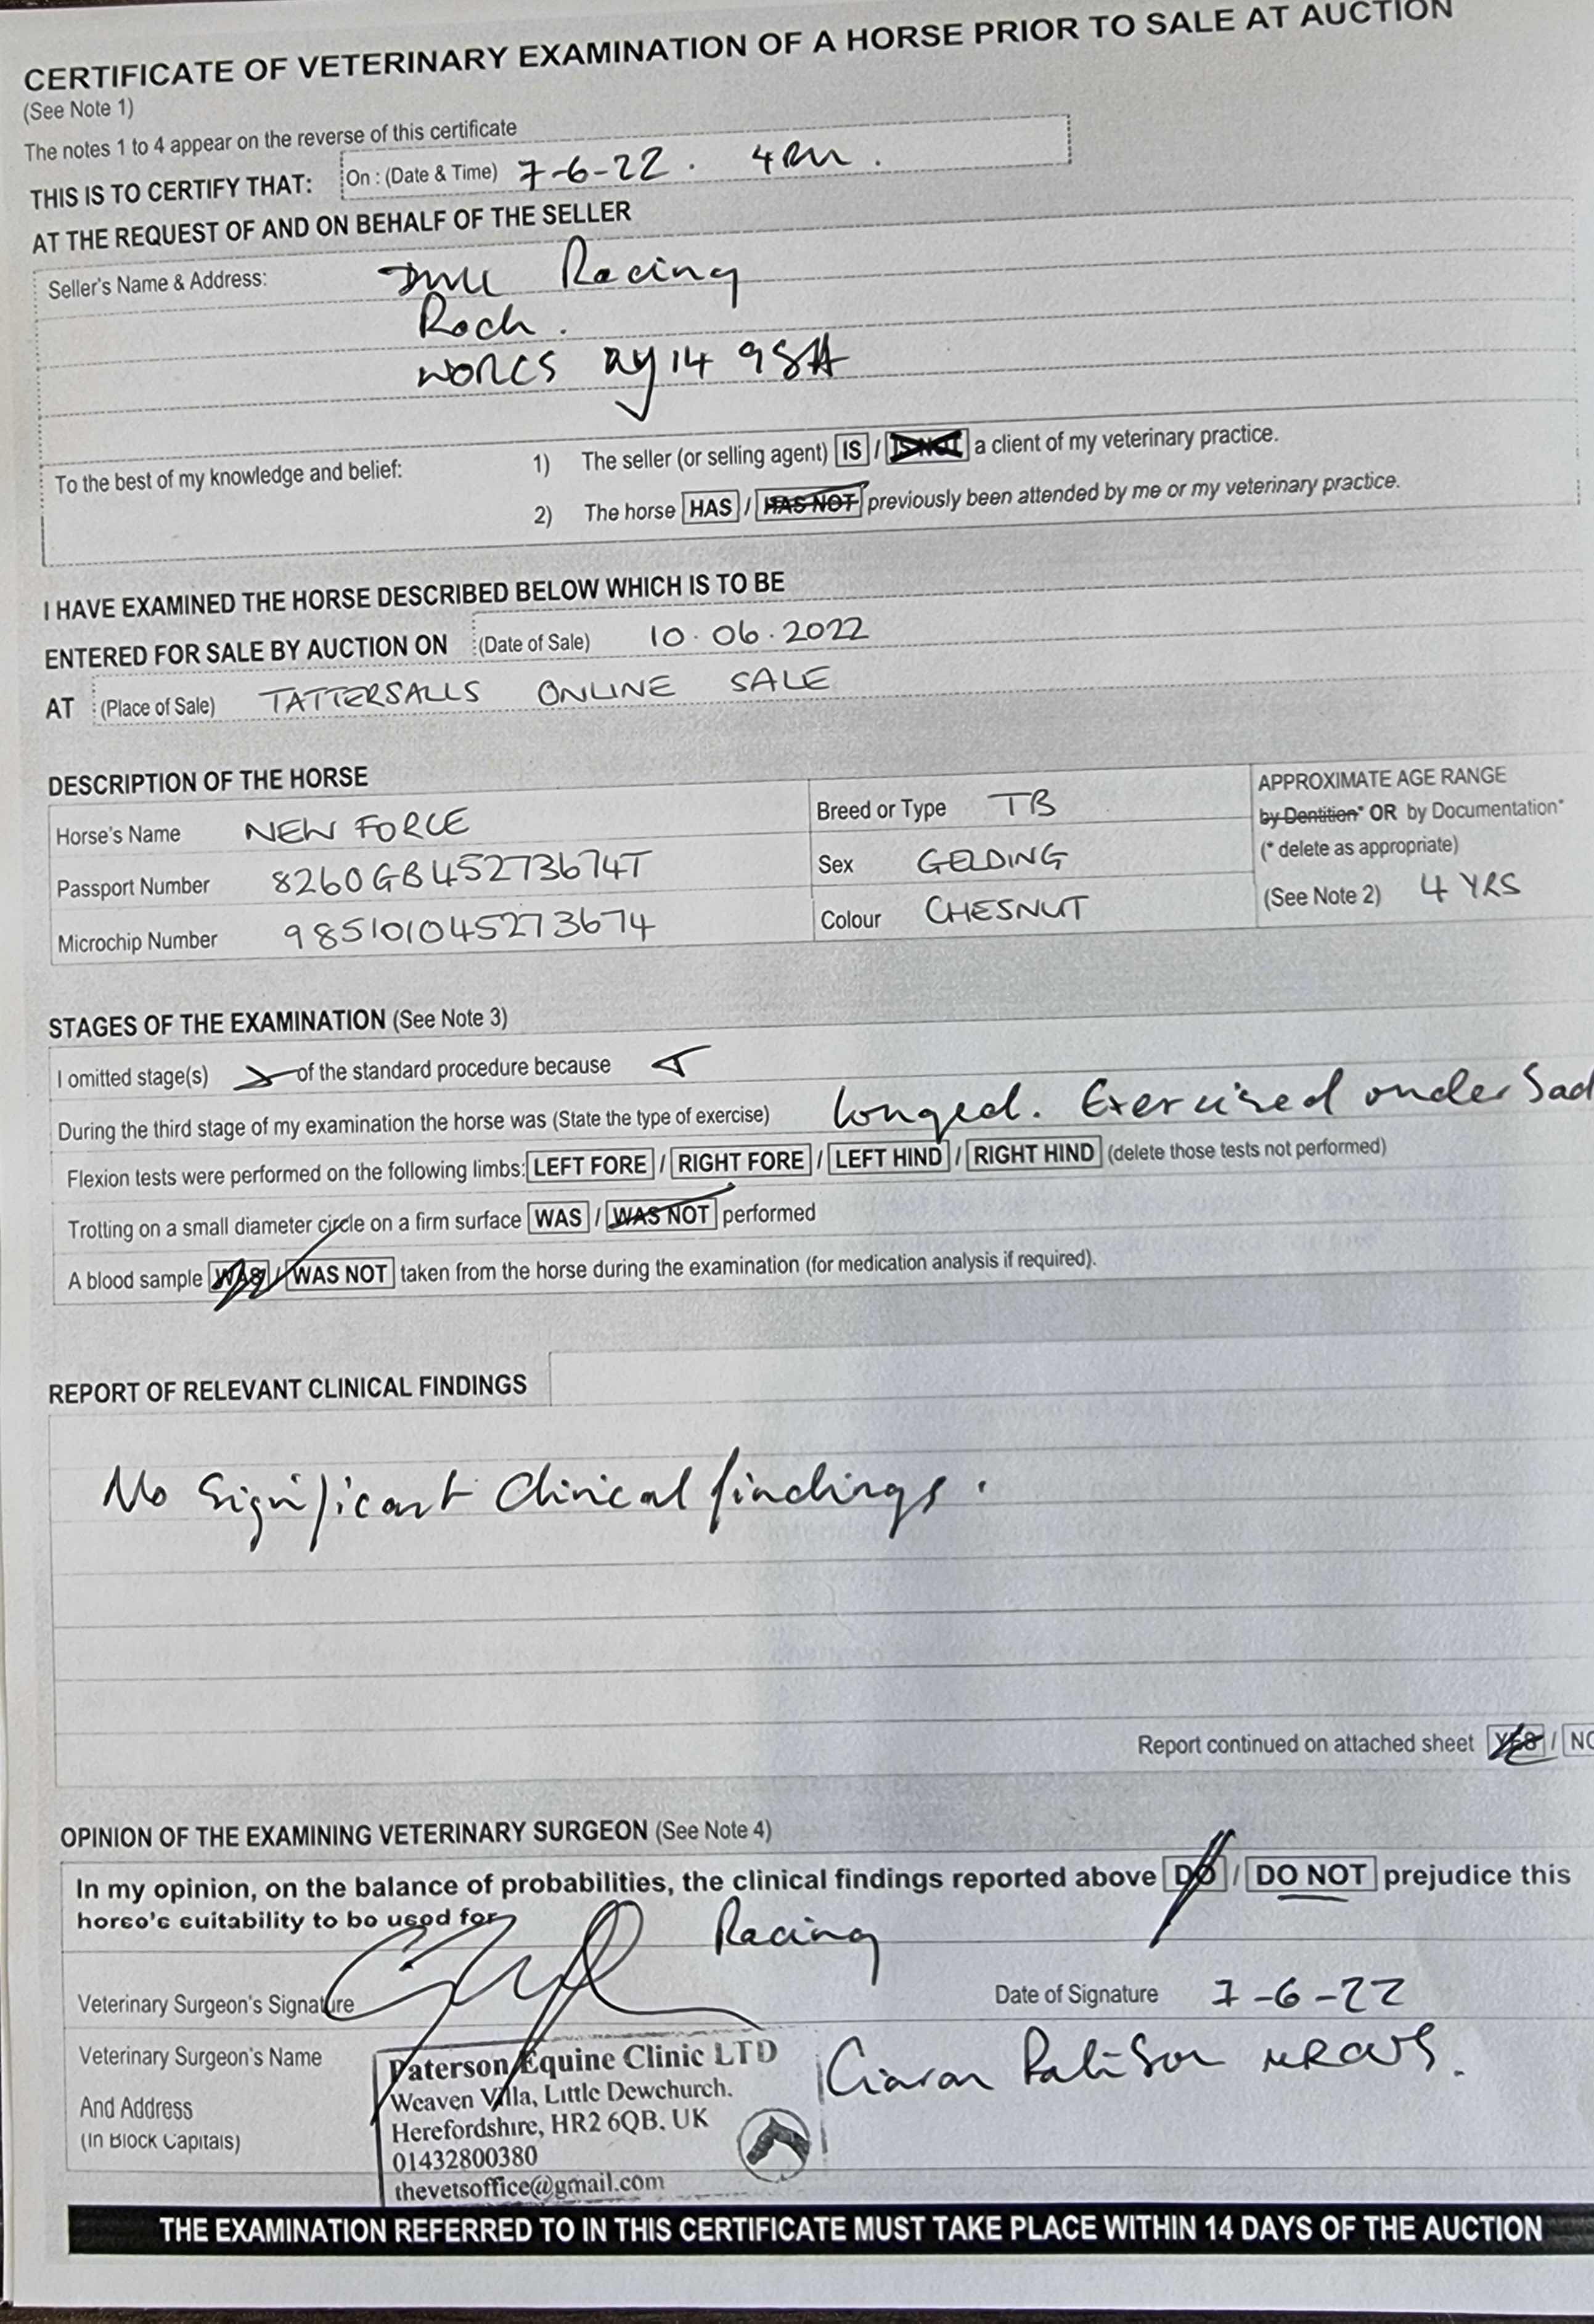 CERTIFICATE OF VETERINARY EXAMINATION OF A HORSE PRIOR TO SALE AT AUCTION
(See Note 1)
The notes 1 to 4 appear on the reverse of this certificate
THIS IS TO CERTIFY THAT: On : (Date & Time) 7-6-22 . 4pm .
AT THE REQUEST OF AND ON BEHALF OF THE SELLER
Seller's Name & Address: Racing
Rock .
WORCS 14 9SA
To the best of my knowledge and belief: 1) The seller (or selling agent) IS / IS NOT a client of my veterinary practice.
2) The horse HAS / HAS NOT previously been attended by me or my veterinary practice.
I HAVE EXAMINED THE HORSE DESCRIBED BELOW WHICH IS TO BE
ENTERED FOR SALE BY AUCTION ON (Date of Sale) 10.06.2022
AT (Place of Sale) TATTERSALLS ONLINE SALE
DESCRIPTION OF THE HORSE
Horse's Name NEW FORCE
Passport Number 8260GB45273674T
Microchip Number 985101045273674
Breed or Type TB
Sex GELDING
Colour CHESNUT
APPROXIMATE AGE RANGE
by Dentition* OR by Documentation*
(* delete as appropriate)
(See Note 2) 4 YRS
STAGES OF THE EXAMINATION (See Note 3)
I omitted stage(s) of the standard procedure because
During the third stage of my examination the horse was (State the type of exercise) longed. Exercised under Sad
Flexion tests were performed on the following limbs: LEFT FORE / RIGHT FORE / LEFT HIND / RIGHT HIND (delete those tests not performed)
Trotting on a small diameter circle on a firm surface WAS / WAS NOT performed
A blood sample WAS / WAS NOT taken from the horse during the examination (for medication analysis if required).
REPORT OF RELEVANT CLINICAL FINDINGS
No Significant Clinical findings .
Report continued on attached sheet YES / NO
OPINION OF THE EXAMINING VETERINARY SURGEON (See Note 4)
In my opinion, on the balance of probabilities, the clinical findings reported above DO / DO NOT prejudice this
horse's suitability to be used for Racing
Veterinary Surgeon's Signature
Date of Signature 7-6-22
Veterinary Surgeon's Name
And Address
(In Block Capitals)
Paterson Equine Clinic LTD
Weaven Villa, Little Dewchurch.
Herefordshire, HR2 6QB. UK
01432800380
thevetsoffice@gmail.com
Ciaran MRCVS.
THE EXAMINATION REFERRED TO IN THIS CERTIFICATE MUST TAKE PLACE WITHIN 14 DAYS OF THE AUCTION